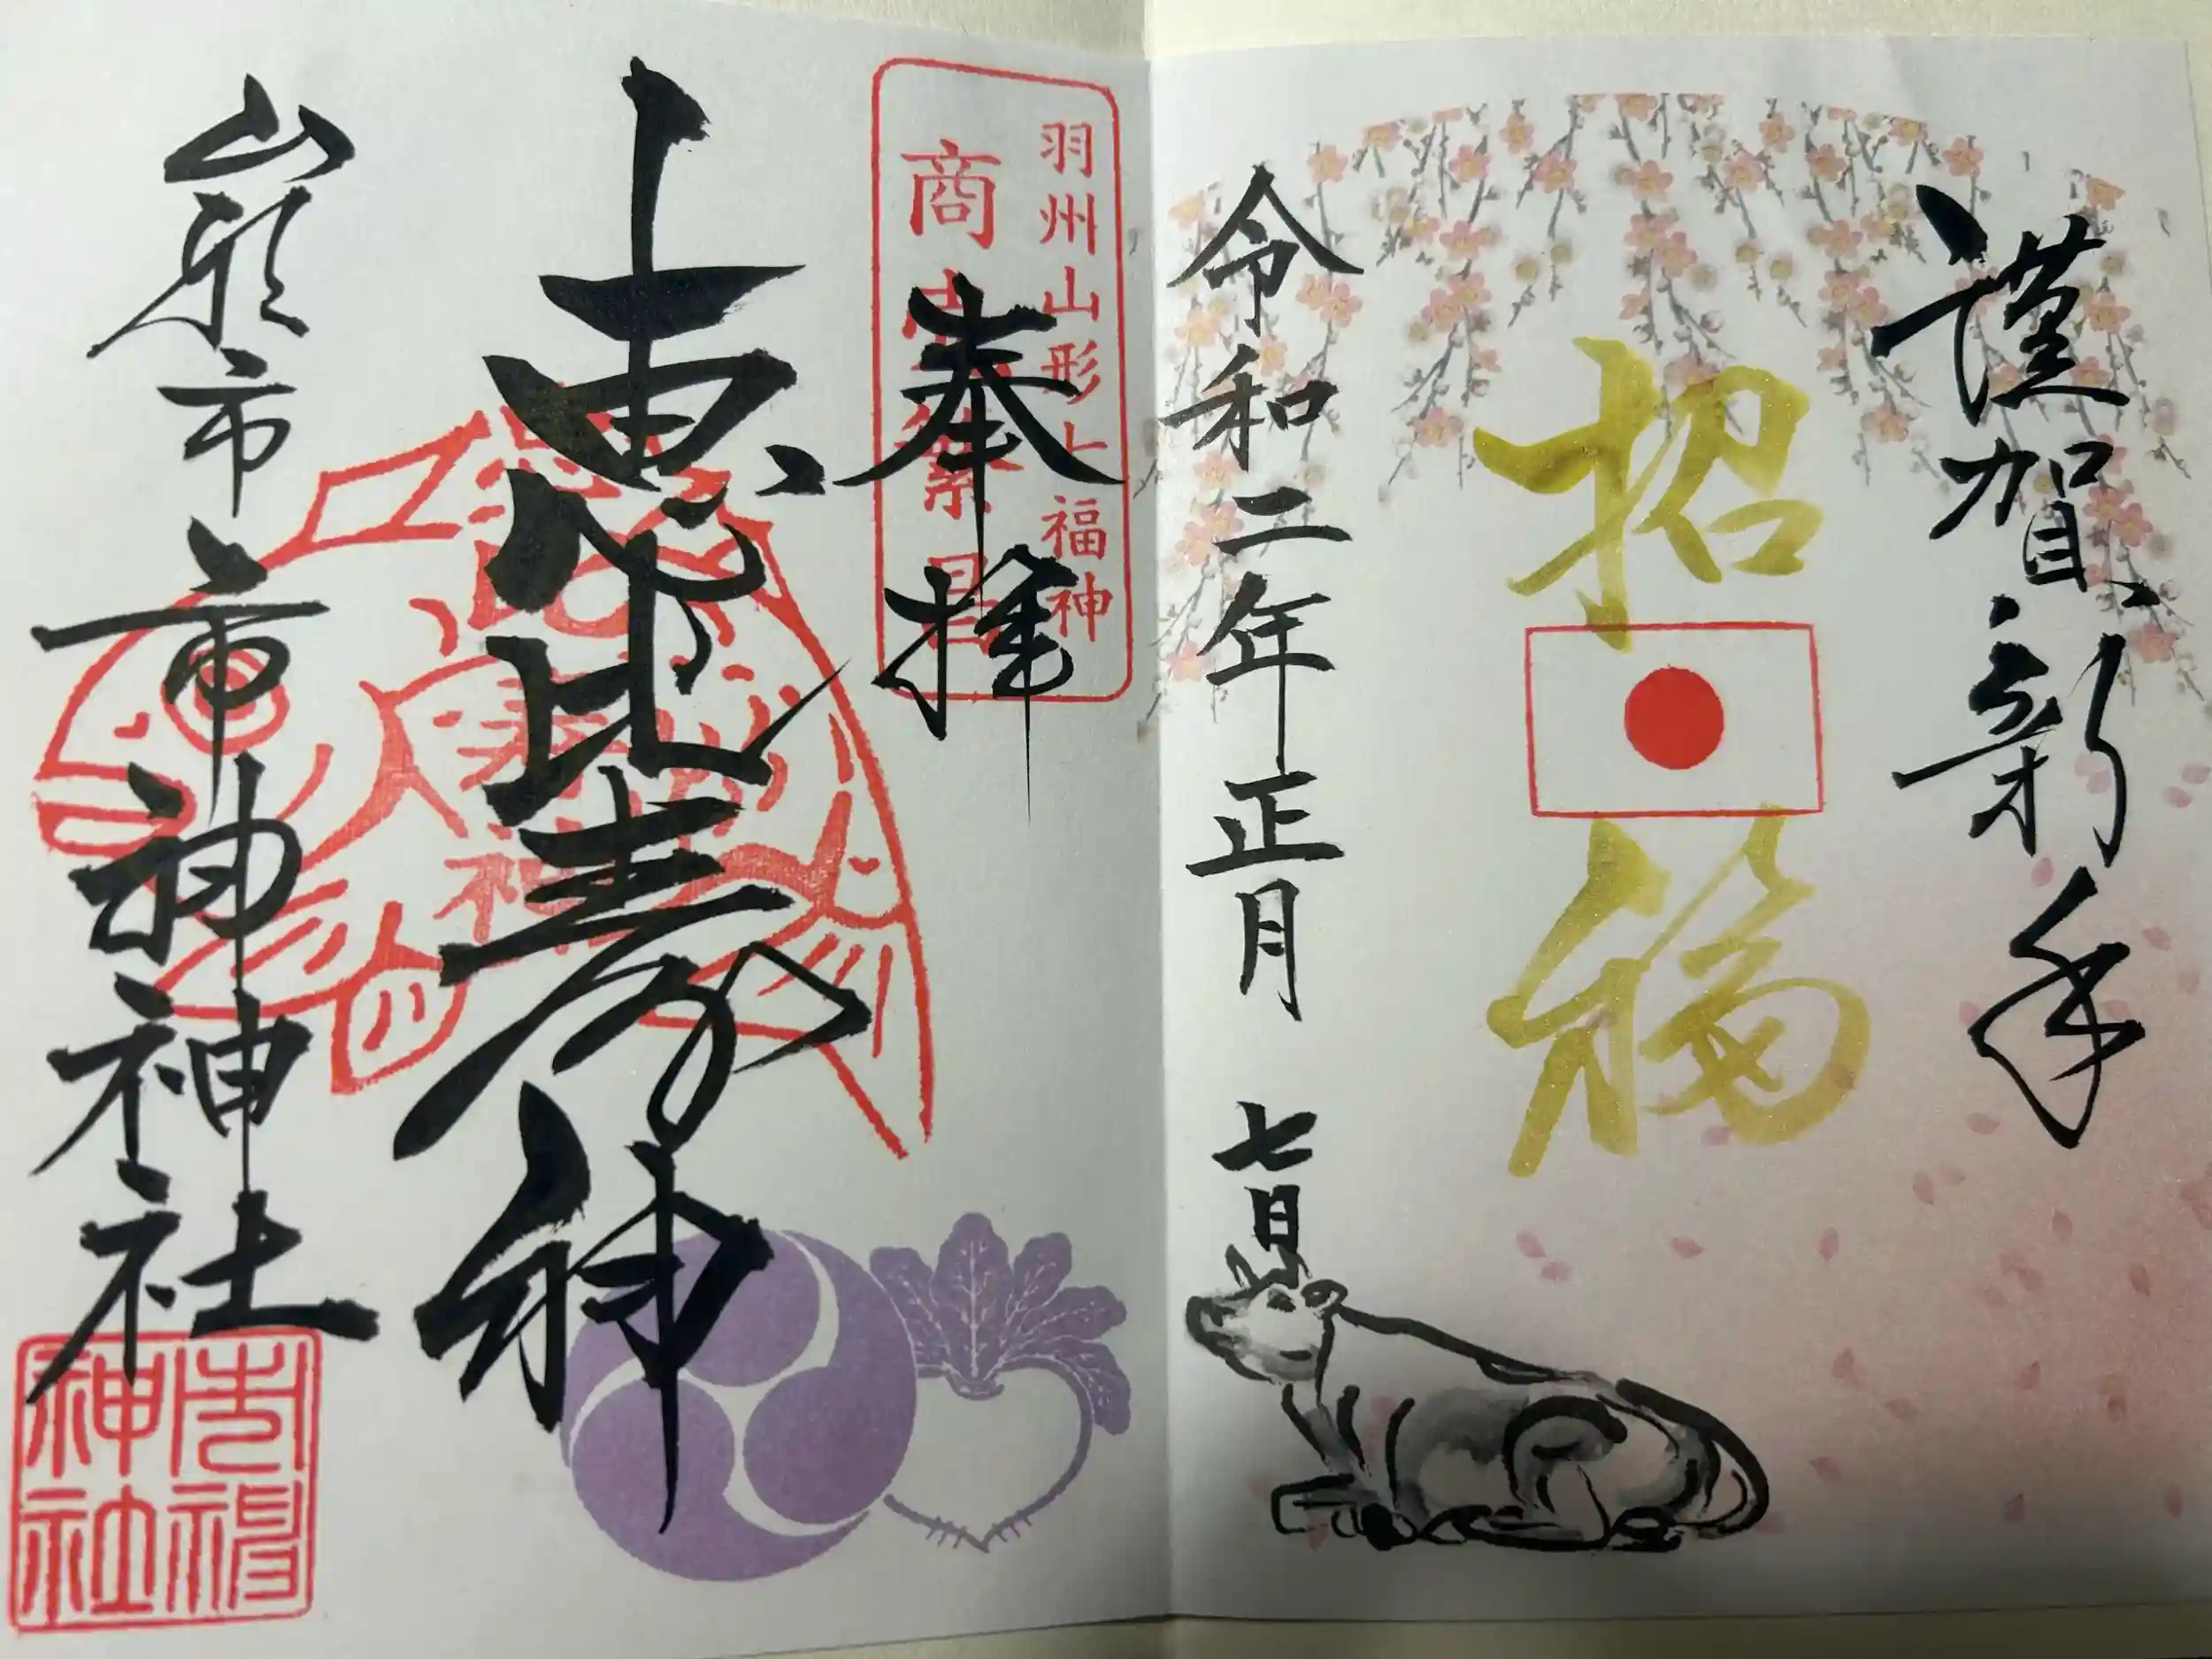 謹賀新年
招福
令和二年正月 七日
羽州山形七福神
商売繁昌
奉拝
恵比寿神
山形市市神神社
市神神社